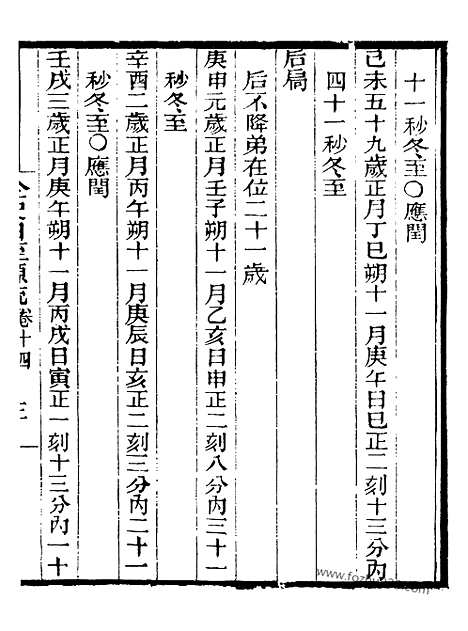 十一秒冬至○應閏
己未五十九歲正月丁巳朔十一月庚午日巳正二刻十三分內
四十一秒冬至
后扃
后不降弟在位二十一歲
庚申元歲正月壬子朔十一月乙亥日申正二刻八分內三十一
秒冬至
辛酉二歲正月丙午朔十一月庚辰日亥正二刻三分內二十一
秒冬至○應閏
壬戌三歲正月庚午朔十一月丙戌日寅正一刻十三分內一十
卷十四
三